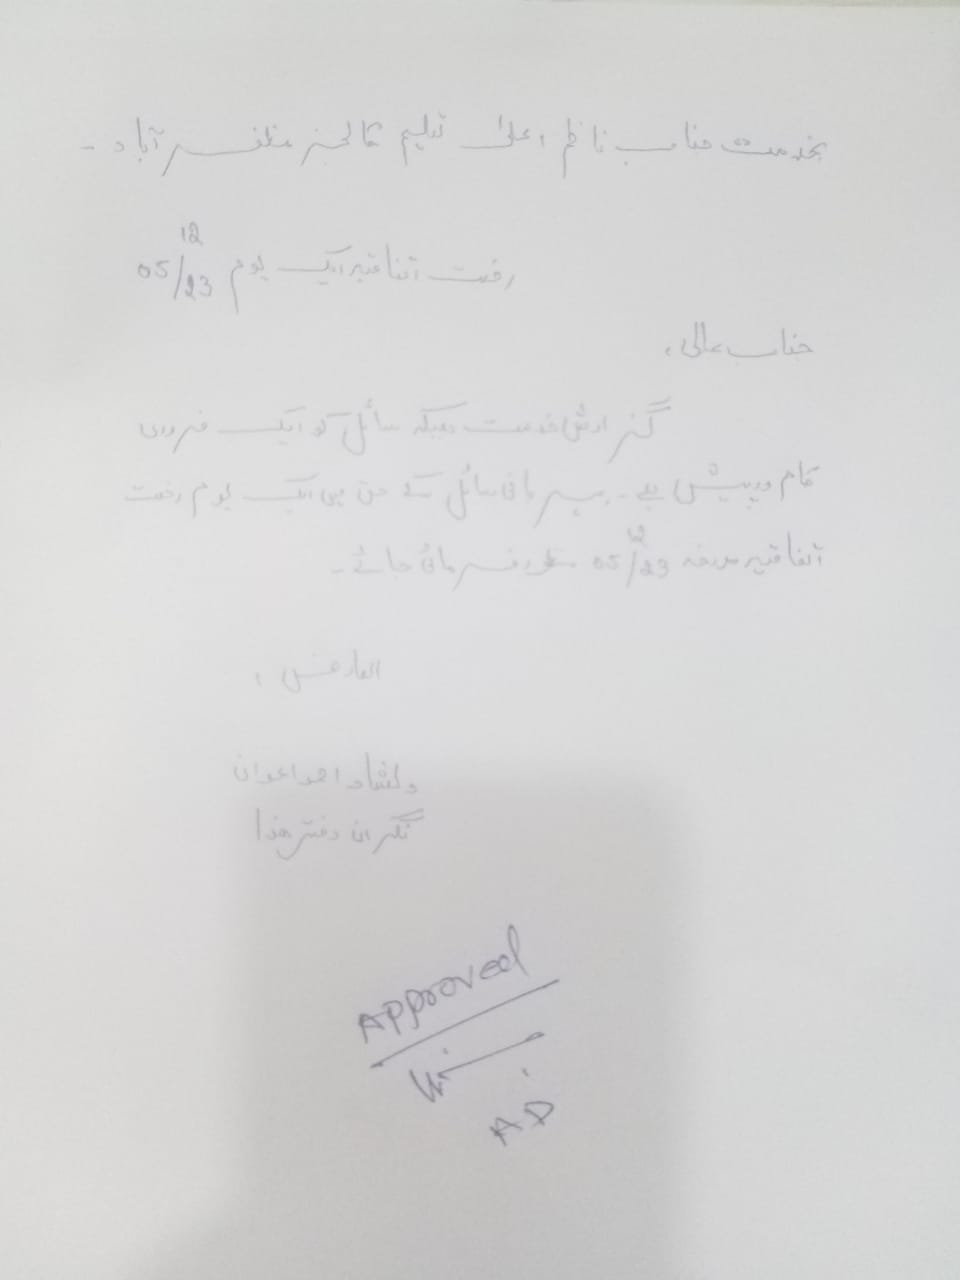 بخدمت جناب ناظم اعلیٰ تعلیم کالجز مظفرآباد۔
رخصت اتفاقیہ ایک یوم 05/12/23
جناب عالی،
گزارش خدمت ہیکہ سائل کو ایک ضروری
کام درپیش ہے۔ مہربانی سائل کے حق میں ایک یوم رخصت
اتفاقیہ مورخہ 05/12/23 منظور فرمائی جائے۔
العارض،
دلشاد احمد اعوان
نگران دفتر ھذا
Approved
A.D